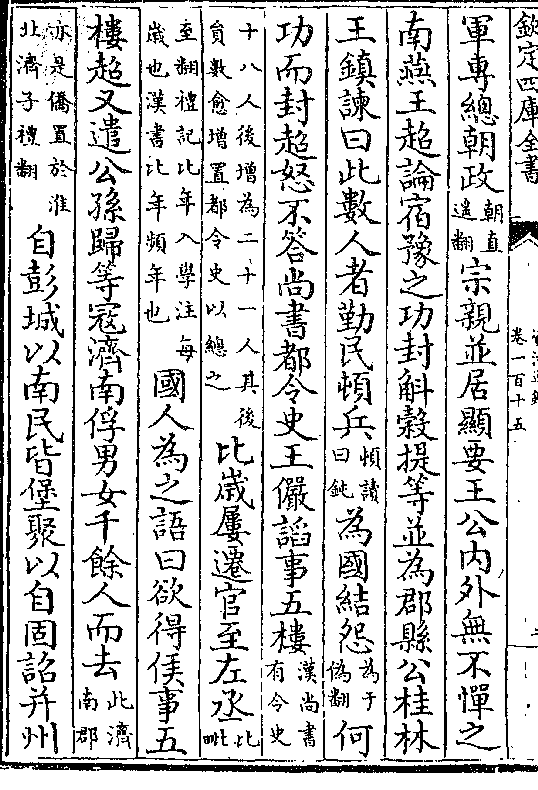 欽定四庫全書
卷一百十五
軍專總朝政朝直遥翻宗親並居顯要王公内外無不憚之
南燕王超論宿豫之功封斛榖提等並為郡縣公桂林
王鎮諫曰此數人者勤民頓兵頓讀曰鈍為國結怨為于偽翻何
功而封超怒不答尚書都令史王儼諂事五樓漢尚書有令史
十八人後增為二十一人其後員數愈增置都令史以總之比歲屢遷官至左丞比毗
至翻禮記比年入學注每歲也漢書比年頻年也國人為之語曰欲得侯事五
樓超又遣公孫歸等寇濟南俘男女千餘人而去此濟南郡
亦是僑置於淮北濟子禮翻自彭城以南民皆堡聚以自固詔并州